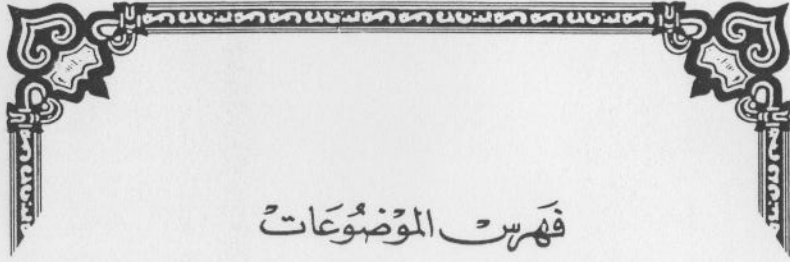 فَهرسْ الموْضُوعَاتْ